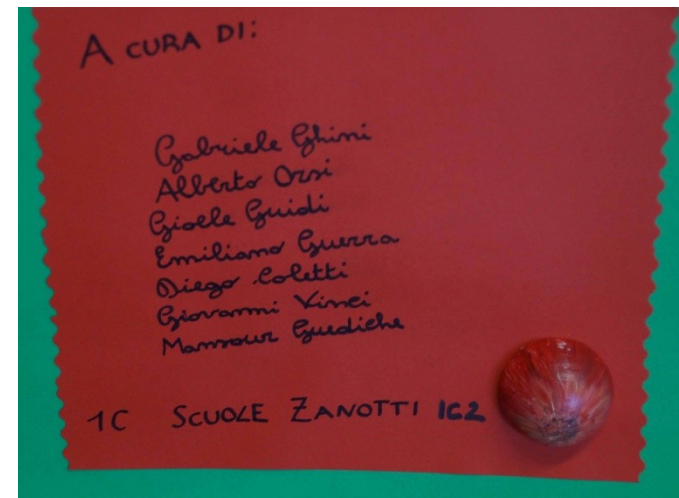 A CURA DI:
Gabriele Ghini
Alberto Orsi
Gioele Guidi
Emiliano Guerra
Diego Coletti
Giovanni Vinci
Mansour Guediche
1C SCUOLE ZANOTTI IC2